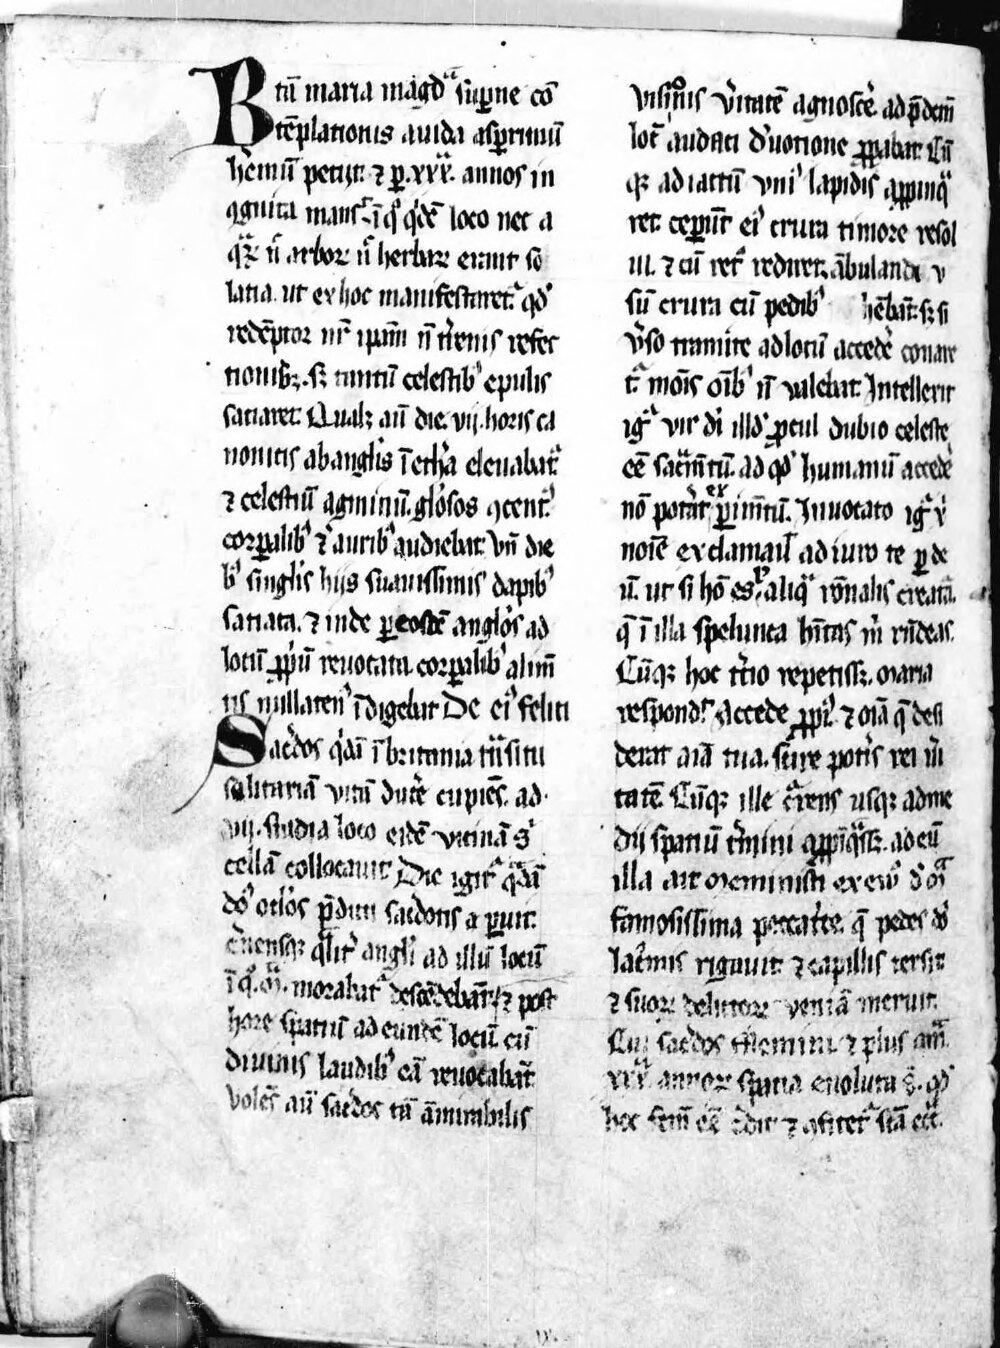 Btā maria magdᵃ suꝑne cō
tēplationis auida asꝑrimū
h̓emū petijt ⁊ ꝑ xxx annos in
ꝯgnita mansᵗ ī qͦ qͥdē loco nec a
qͣꝝ n̄ arboꝝ n̄ herbaꝝ erant so
latia. ut ex hoc manifestaretᷣ qd̓
redēptor nr̄ ipam̄ nō tr̓enis refec
tionibꝫ. sꝫ tantū celestibꝰ epulis
saciaret. Qualꝫ aū die. vij. horis ca
nonicis ab angl̓is ī eth̓a eleuabatᷣ
⁊ celestiū agminū. gl̓osos ꝯcentꝰ
corꝑalibꝰ ⁊ auribꝰ audiebat. Vn̄ die
bꝰ singl̓is hijs suauissimis dapibꝰ
satiata. ⁊ inde ꝑ eosdē angl̓os ad
locū ꝓpͥū reuocata. corꝑalibꝰ alim̄
tis nullatenꝰ īdigebat. De eiꝰ felici
Sac̓dos qͥdā ī britania tn̄situ
solitariā vitā duc̓e cupiēs. ad
vij. stadia loco eidē vicinā sͥ
cellā collocauit. Die igitᷣ qͣdā
dn̓s oc̓los p̄dicti sac̓dotis aꝑuit.
c̓nensqꝫ qͣlit̓ angl̓i ad illū locū
ī qͦ. m̄. morabatᷣ descēdebāt. ⁊ post
hore spatiū ad eundē locū. cū
diuinis laudibꝰ eā reuocabāt
Volēs aū sac̓dos tā āmirabilis
visiōnis v̓itatē agnosc̓e ad p̄dcm̄
locū audaci d̓uotione ꝓꝑabat. Cū
qꝫ ad iactū vniꝰ lapidis aꝓpinqͣ
ret. ceꝑūt eiꝰ crura timore resol
ui. ⁊ cū ret̓ rediret. ābulandi v
sū crura cū pedibꝰ hēbāt. sꝫ si
v̓so tramite ad locū acced̓e conare
tᷣ. mōis oībꝰ n̄ valebat. Intellexit
igͥ vir di illd̓ ꝓcul dubio celeste
eē sac̄m̄tū. ad qd̓ humanū acced̓e
nō pot̓at exꝑim̄tū. Inuocato igͥ xͥ
noīe exclamauit. adiuro te ꝑ de
ū. ut si hō es. vͭ aliqͣ rōnalis creatā
q̄ ī illa spelunca hītas m̄ rn̄deas.
Cūqꝫ hoc tr̓io repetissꝫ. maria
respondᵗ. Accede ꝓpiꝰ. ⁊ oīa q̄ desi
derat aīa tua. scire potis rei v̓i
tatē. Cūqꝫ ille tᷣmens usqꝫ ad me
dij spatiū tr̓mini aꝓpīqͣssꝫ. ad eū
illa ait. Meministi ex ewͦ d̓ m̄
famosissima peccatͥce. q̄ pedes dn̓i
lac̓mis rigauit ⁊ capillis tersit
⁊ suoꝝ delictoꝝ veniā meruit.
Cui sac̓dos. Memini. ⁊ plus qͣm
xxx annoꝝ spatia euoluta s̄. qd̓
hoc fcm̄ eē c̓dit ⁊ ꝯfitetᷣ scā ecc̄.